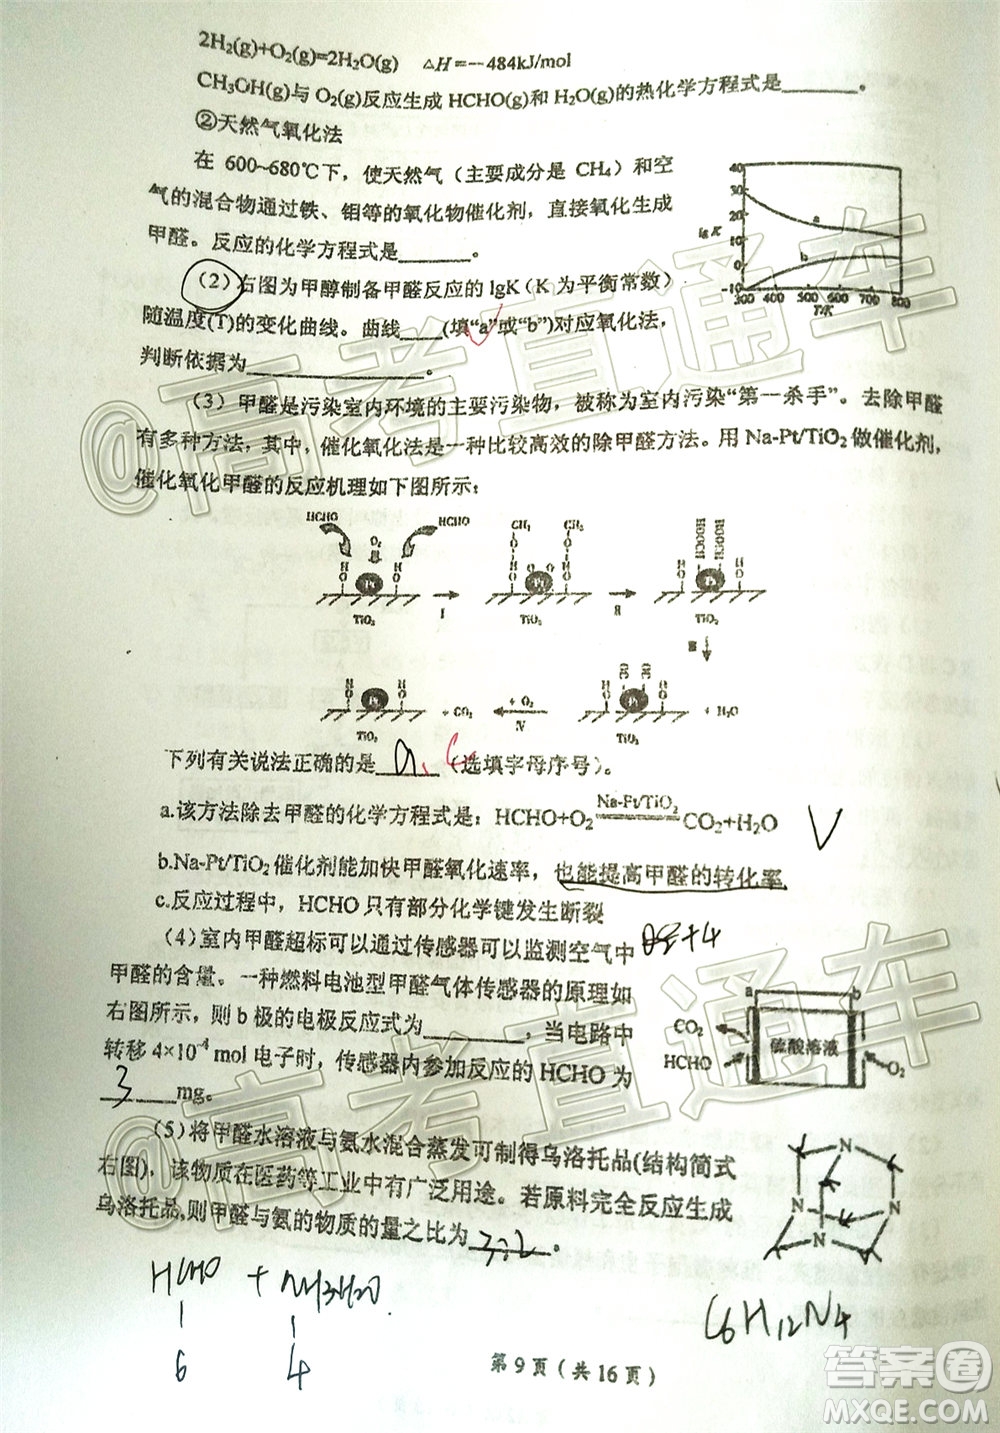 2H₂(g)+O₂(g)=2H₂O(g) △H=-484kJ/mol
CH₃OH(g)与 O₂(g)反应生成 HCHO(g)和 H₂O(g)的热化学方程式是______。
②天然气氧化法
在 600~680℃下，使天然气（主要成分是 CH₄）和空
气的混合物通过铁、钼等的氧化物催化剂，直接氧化生成
甲醛。反应的化学方程式是______。
40
30
20
10
0
-10
lg K
a
b
300 400 500 600 700 800
T/K
（2）右图为甲醇制备甲醛反应的 lgK（K 为平衡常数）
随温度(T)的变化曲线。曲线____(填“a”或“b”)对应氧化法，
判断依据为______________。
（3）甲醛是污染室内环境的主要污染物，被称为室内污染“第一杀手”。去除甲醛
有多种方法，其中，催化氧化法是一种比较高效的除甲醛方法。用 Na-Pt/TiO₂ 做催化剂，
催化氧化甲醛的反应机理如下图所示：
HCHO HCHO
O₂
Pt
TiO₂
I
CH₂ CH₂
TiO₂
II
HCOOH HCOOH
TiO₂
III
TiO₂
+ H₂O
+ O₂
IV
+ CO₂
TiO₂
下列有关说法正确的是 a、c （选填字母序号）。
a.该方法除去甲醛的化学方程式是：HCHO+O₂ Na-Pt/TiO₂ CO₂+H₂O √
b.Na-Pt/TiO₂ 催化剂能加快甲醛氧化速率，也能提高甲醛的转化率
c.反应过程中，HCHO 只有部分化学键发生断裂
（4）室内甲醛超标可以通过传感器可以监测空气中
甲醛的含量。一种燃料电池型甲醛气体传感器的原理如
右图所示，则 b 极的电极反应式为________，当电路中
转移 4×10⁻⁴ mol 电子时，传感器内参加反应的 HCHO 为
3 mg。
+4
a b
CO₂
HCHO
硫酸溶液
O₂
（5）将甲醛水溶液与氨水混合蒸发可制得乌洛托品(结构简式
右图)，该物质在医药等工业中有广泛用途。若原料完全反应生成
乌洛托品,则甲醛与氨的物质的量之比为 3:2 。
N
N
N
N
HCHO + NH3·H2O
6 4
C6H12N4
第 9 页（共 16 页）
答案圈
MXQE.COM
@高考直通车
@高考直通车